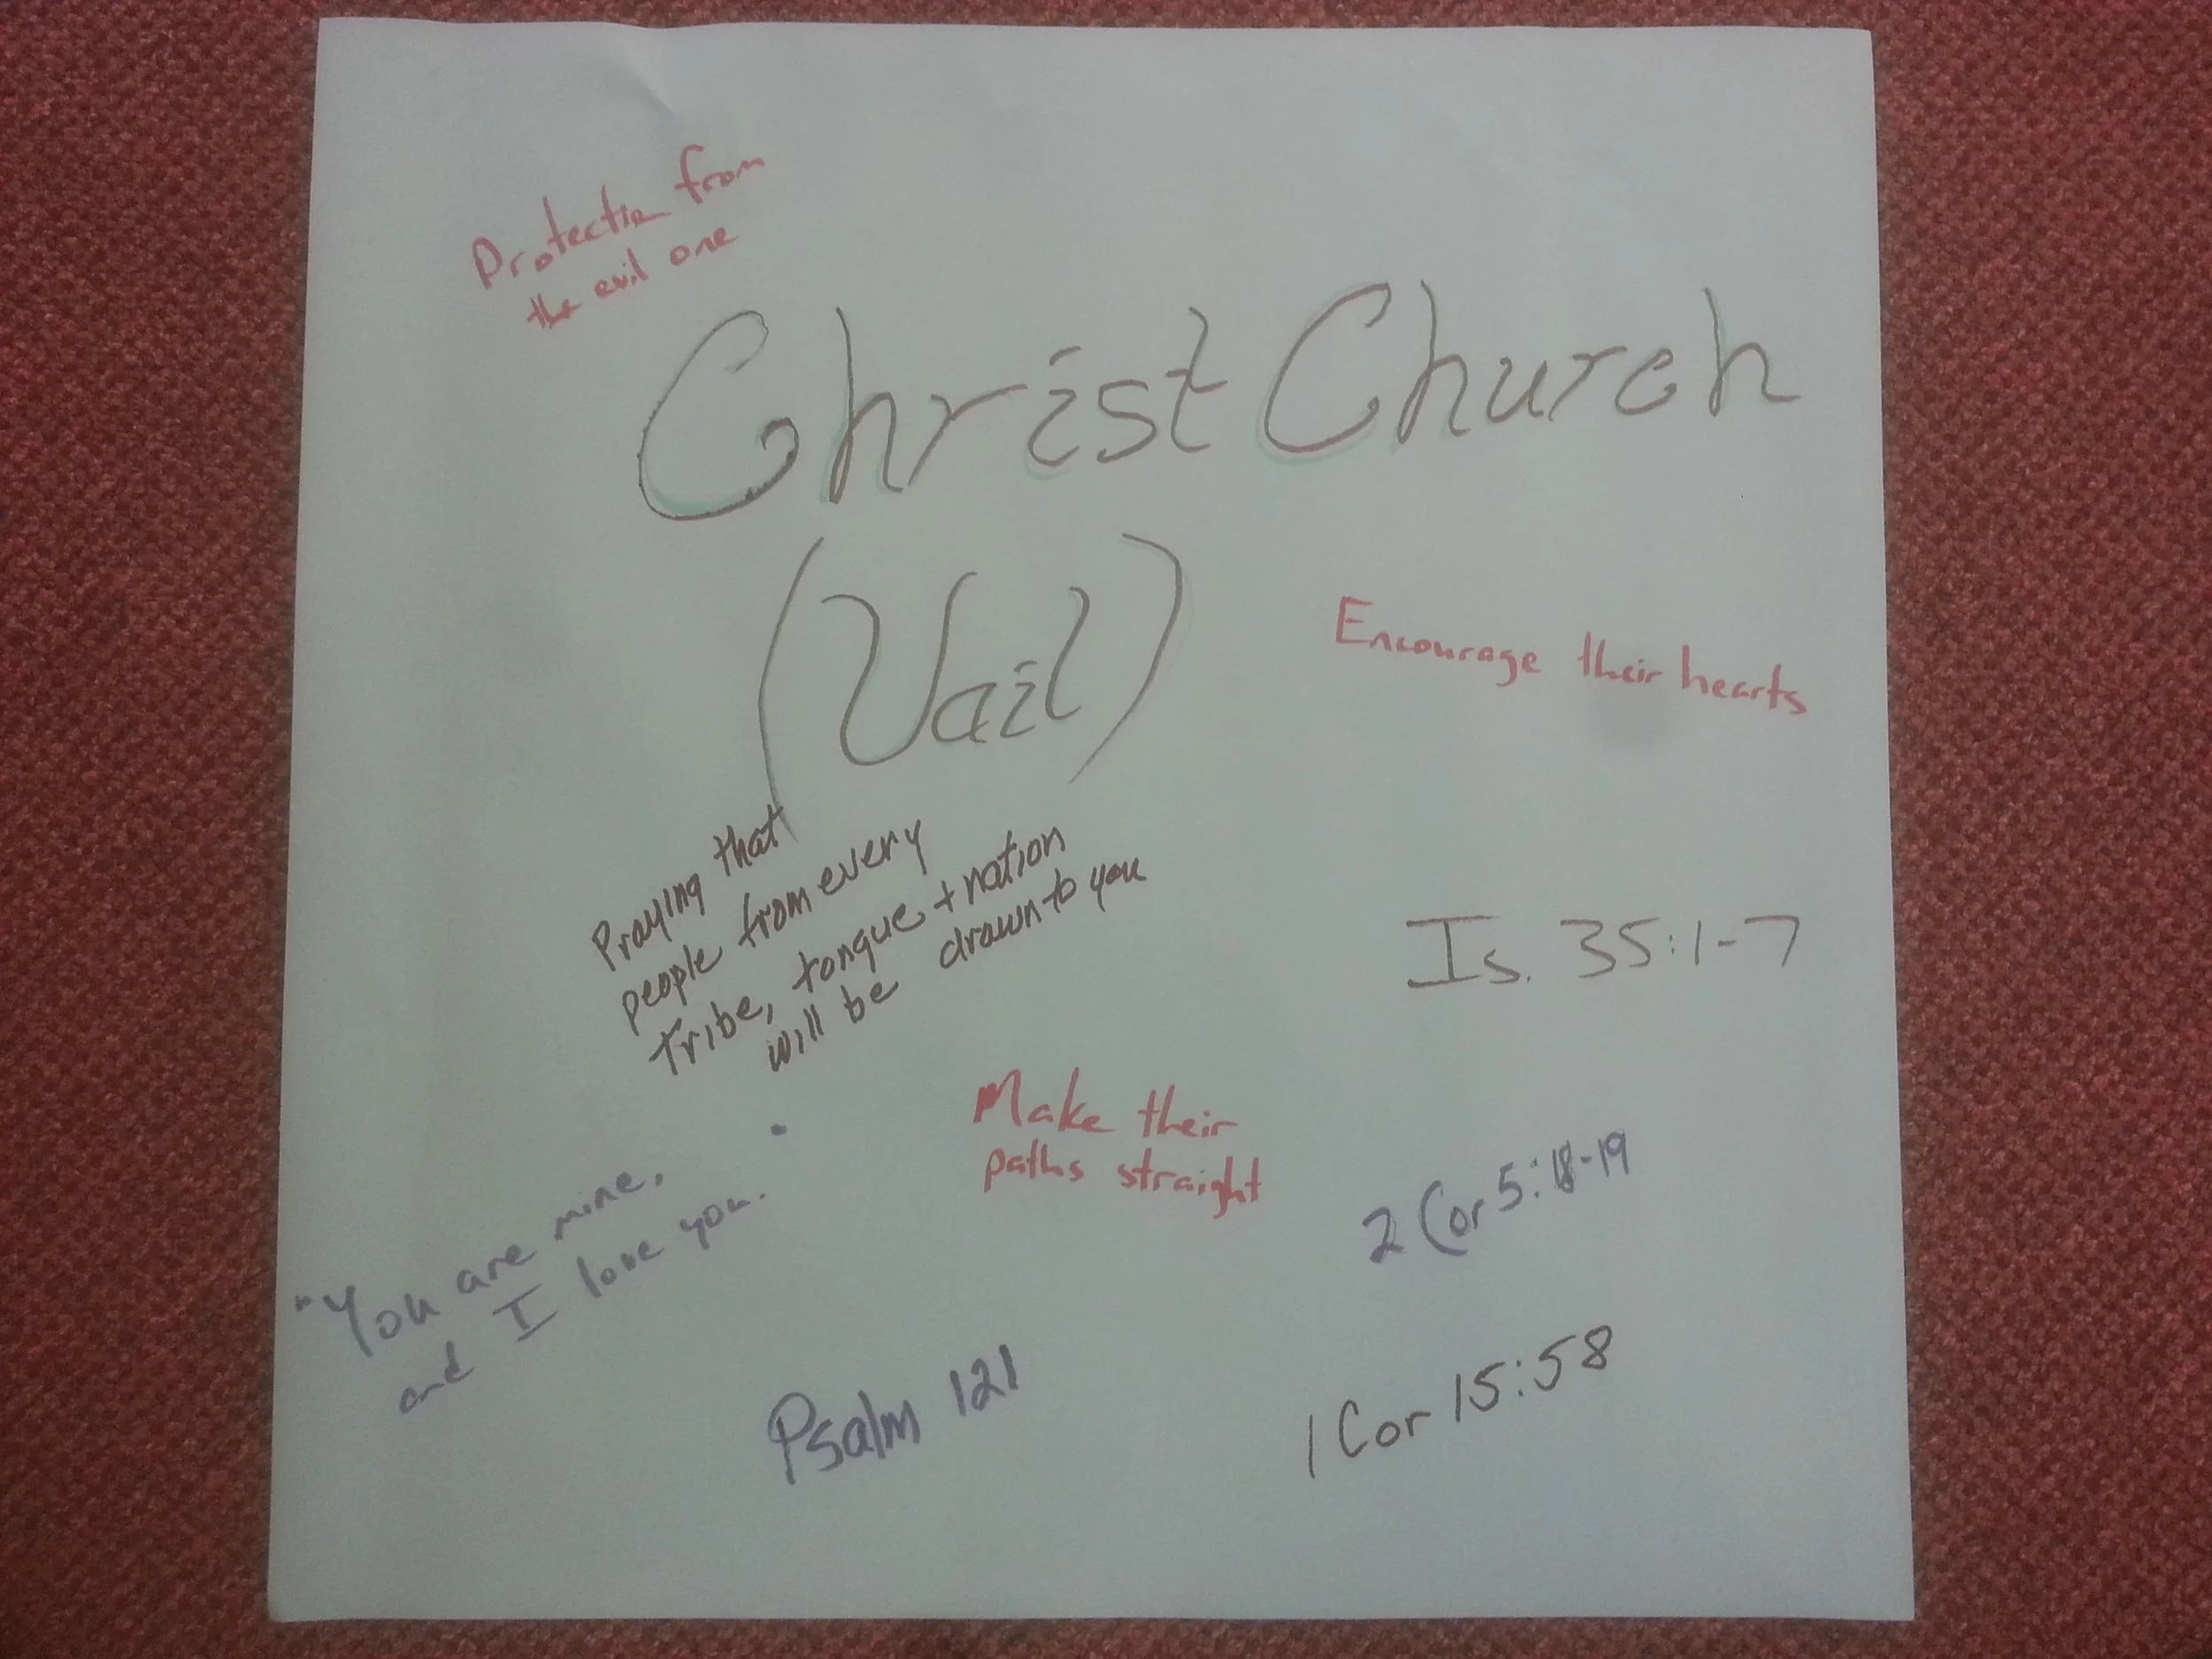 Protection from
the evil one
Christ Church
(Vail)
Encourage their hearts
Praying that
people from every
tribe, tongue + nation
will be drawn to you
Is. 35:1-7
Make their
paths straight
"You are mine,
and I love you."
2 Cor 5:18-19
Psalm 121
1 Cor 15:58